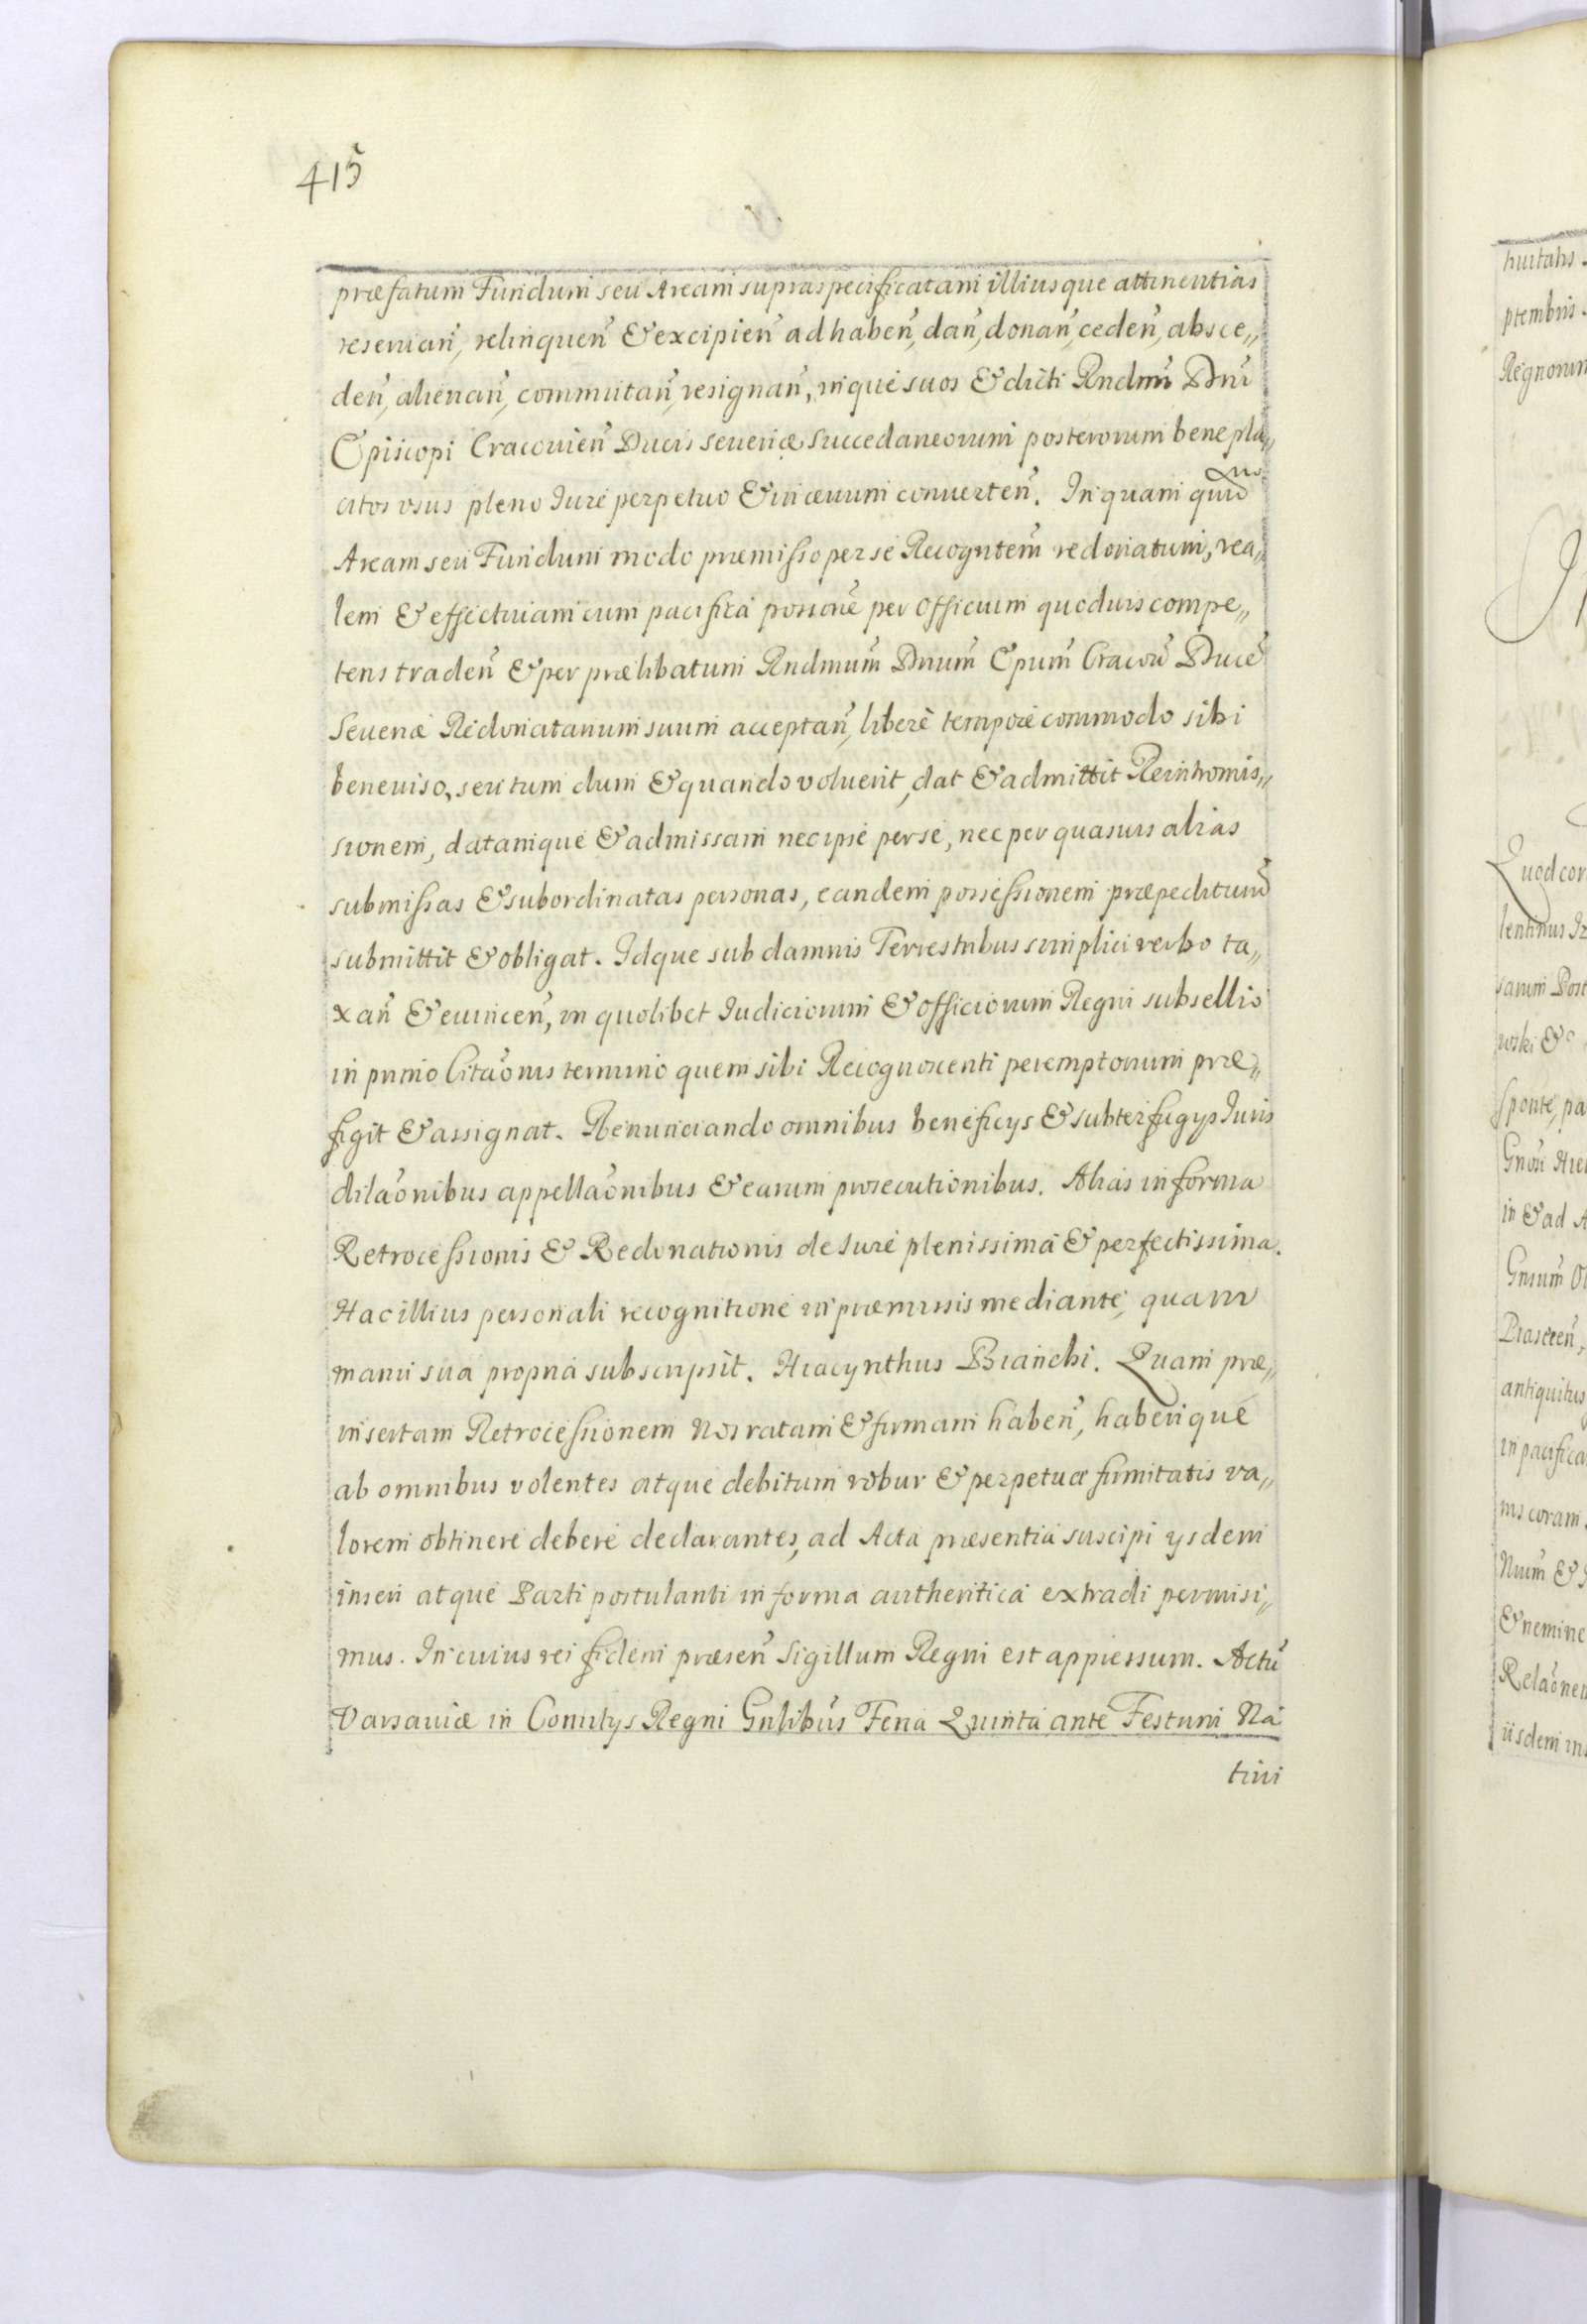 415
præfatum Fundum seu Aream supraspecificatam illiusque attinentias
reseruan̄, relinquen̄ & excipien̄ ad haben̄, dan̄, donan̄, ceden̄, absce„
den̄, alienan̄, commutan̄, resignan̄, inque suos & dicti Rndmī Dnī
Episcopi Cracouien̄ Ducis Seueriæ succedaneorum posterorum benepla„
citos vsus pleno Iure perpetuo & in æuum conuerten̄. In quam
Aream seu Fundum modo præmisso per se Recogntem̄ redonatum, rea„
lem & effectiuam cum pacifica possione per Officium quoduis compe„
tens traden̄ & per prælibatum Rndmum̄ Dnum̄ Epum̄ Cracou̅ Ducē
Seueriæ Redonatarium suum acceptan̄, liberè tempore commodo sibi
beneuiso, seu tum dum & quando voluerit, dat & admittit Reintromis„
sionem, datamque & admissam nec ipse per se, nec per quasuis alias
submissas & subordinatas personas, eandem possessionem præpediturū
submittit & obligat. Idque sub damnis Terrestribus simplici verbo ta„
xan̄ & euincen̄, in quolibet Iudiciorum & Officiorum Regni subsellio
in primo Citāonis termino quem sibi Recognoscenti peremptorium præ„
figit & assignat. Renunciando omnibus beneficys & subterfugys Iuris
dilāonibus appellāonibus & earum prosecutionibus. Alias in forma
Retrocessionis & Redonationis de Iure plenissima & perfectissima.
Hac illius personali recognitione in præmissis mediante, quam
manu sua propria subscripsit. Hiacynthus Bianchi. Quam præ„
insertam Retrocessionem Nos ratam & firmam haben̄, haberique
ab omnibus volentes atque debitum robur & perpetuæ firmitatis va„
lorem obtinere debere declarantes, ad Acta præsentia suscipi ysdem
inseri atque Parti postulanti in forma authentica extradi permisi„
mus. In cuius rei fidem præsen̄ Sigillum Regni est appressum. Actū
Varsauiæ in Comitys Regni Gnlibūs Feria Quinta ante Festum Na
tiui